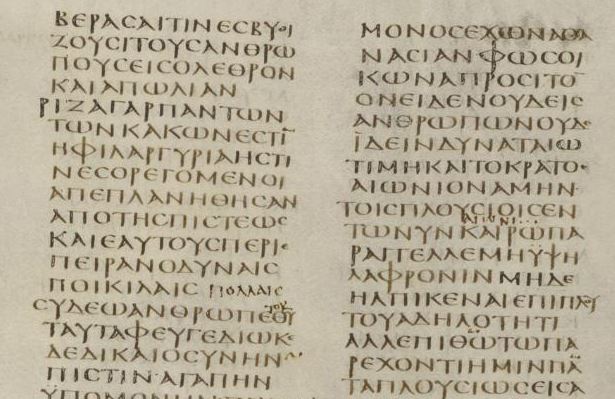 ΒΕΡΑϹΑΙΤΙΝΕϹΒΥΘΙ
ΖΟΥϹΙΤΟΥϹΑΝΘΡΩ
ΠΟΥϹΕΙϹΟΛΕΘΡΟΝ
ΚΑΙΑΠΩΛΙΑΝ
ΡΙΖΑΓΑΡΠΑΝΤΩΝ
ΤΩΝΚΑΚΩΝΕϹΤΙ̅
ΗΦΙΛΑΡΓΥΡΙΑΗϹΤΙ
ΝΕϹΟΡΕΓΟΜΕΝΟΙ
ΑΠΕΠΛΑΝΗΘΗϹΑΝ
ΑΠΟΤΗϹΠΙϹΤΕΩϹ
ΚΑΙΕΑΥΤΟΥϹΠΕΡΙΕ
ΠΕΙΡΑΝΟΔΥΝΑΙϹ
ΠΟΙΚΙΛΑΙϹ ΠΟΛΛΑΙϹ
ΤΟΥ
ϹΥΔΕΩΑΝΘΡΩΠΕΘΥ
ΤΑΥΤΑΦΕΥΓΕΔΙΩΚΕ
ΔΕΔΙΚΑΙΟϹΥΝΗΝ
ΠΙϹΤΙΝ·ΑΓΑΠΗΝ
ΫΠΟΜΟΝΗΝ
ΜΟΝΟϹΕΧΩΝΑΘΑ
ΝΑϹΙΑΝΦΩϹΟΙ
ΚΩΝΑΠΡΟϹΙΤΟ̅
ΟΝΕΙΔΕΝΟΥΔΕΙϹ
ΑΝΘΡΩΠΩΝΟΥΔΕ
ΪΔΕΙΝΔΥΝΑΤΑΙΩ
ΤΙΜΗΚΑΙΤΟΚΡΑΤΟϹ
ΑΙΩΝΙΟΝΑΜΗΝ·
ΤΟΙϹΠΛΟΥϹΙΟΙϹΕΝ
ΤΩΝΥΝΚΑΙΡΩΠΑ
ΡΑΓΓΕΛΛΕΜΗΫΨΗ
ΛΑΦΡΟΝΙΝΜΗΔΕ
ΗΛΠΙΚΕΝΑΙΕΠΙΠΛΟΥ
ΤΟΥΑΔΗΛΟΤΗΤΙ
ΑΛΛΕΠΙΘΩ̅ΤΩΠΑ
ΡΕΧΟΝΤΙΗΜΙΝΠΑ̅
ΤΑΠΛΟΥϹΙΩϹΕΙϹΑ